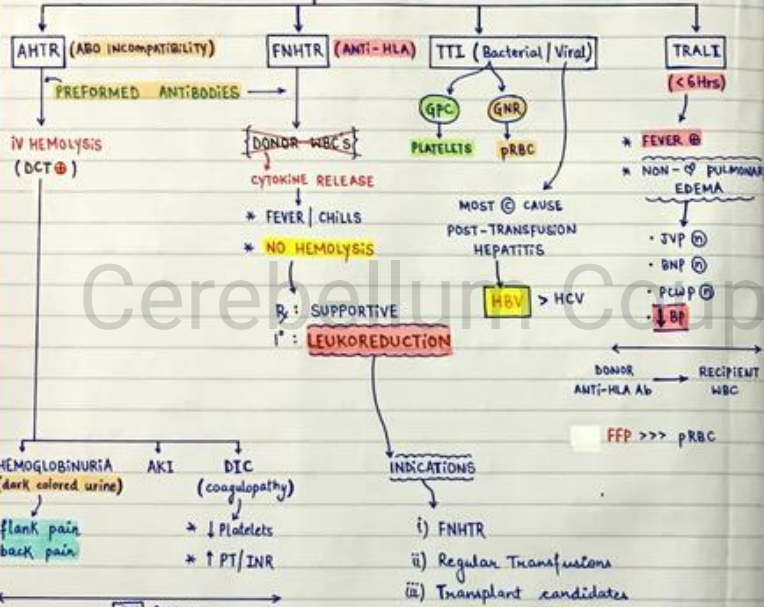 AHTR (ABO INCOMPATIBILITY)
PREFORMED ANTIBODIES
IV HEMOLYSIS
(DCT ⊕)
HEMOGLOBINURIA
(dark colored urine)
flank pain
back pain
AKI
DIC
(coagulopathy)
* ↓ Platelets
* ↑ PT/INR
FNHTR (ANTI-HLA)
{DONOR WBC'S}
CYTOKINE RELEASE
* FEVER | CHILLS
* NO HEMOLYSIS
Rx : SUPPORTIVE
1° : LEUKOREDUCTION
INDICATIONS
i) FNHTR
ii) Regular Transfusions
iii) Transplant candidates
TTI (Bacterial / Viral)
GPC
PLATELETS
GNR
pRBC
MOST © CAUSE
POST-TRANSFUSION
HEPATITIS
HBV > HCV
TRALI
(<6Hrs)
* FEVER ⊕
* NON-♡ PULMONAR
EDEMA
· JVP ⓝ
· BNP ⓝ
· PCWP ⓝ
· ↓ BP
DONOR
ANTI-HLA Ab → RECIPIENT
WBC
FFP >>> pRBC
Cerebellum Coup